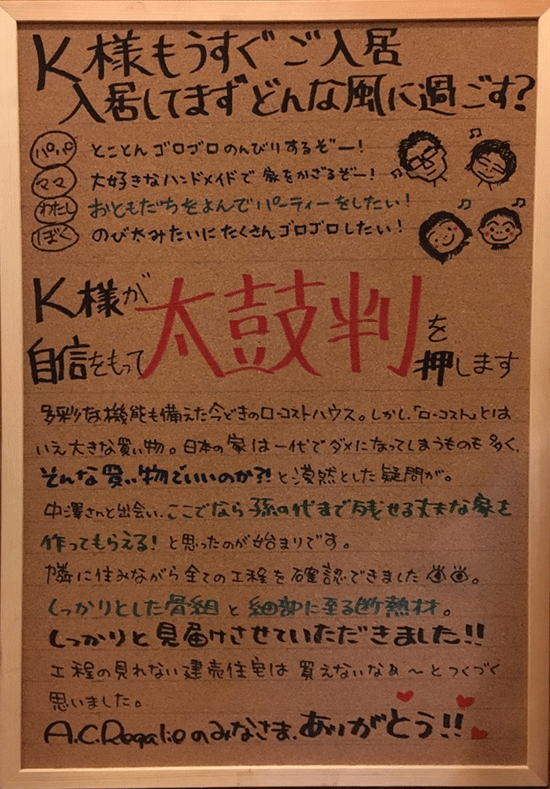 K様もうすぐご入居
入居してまずどんな風に過ごす?
パパ とことんゴロゴロのんびりするぞー!
ママ 大好きなハンドメイドで家をかざるぞー!
わたし おともだちをよんでパーティーをしたい!
ぼく のび太みたいにたくさんゴロゴロしたい!
K様が
自信をもって太鼓判を押します
多彩な機能も備えた今どきのローコストハウス。しかし、「ローコスト」とは
いえ大きな買い物。日本の家は一代でダメになってしまうものも多く、
そんな買い物でいいのか?!と漠然とした疑問が。
中澤さんと出会い、ここでなら孫の代まで残せる丈夫な家を
作ってもらえる!と思ったのが始まりです。
隣に住みながら全ての工程を確認できました。
しっかりとした骨組と細部に至る断熱材。
しっかりと見届けさせていただきました!!
工程の見れない建売住宅は買えないなぁ〜とつくづく
思いました。
A.C.Regalieのみなさま、ありがとう!!